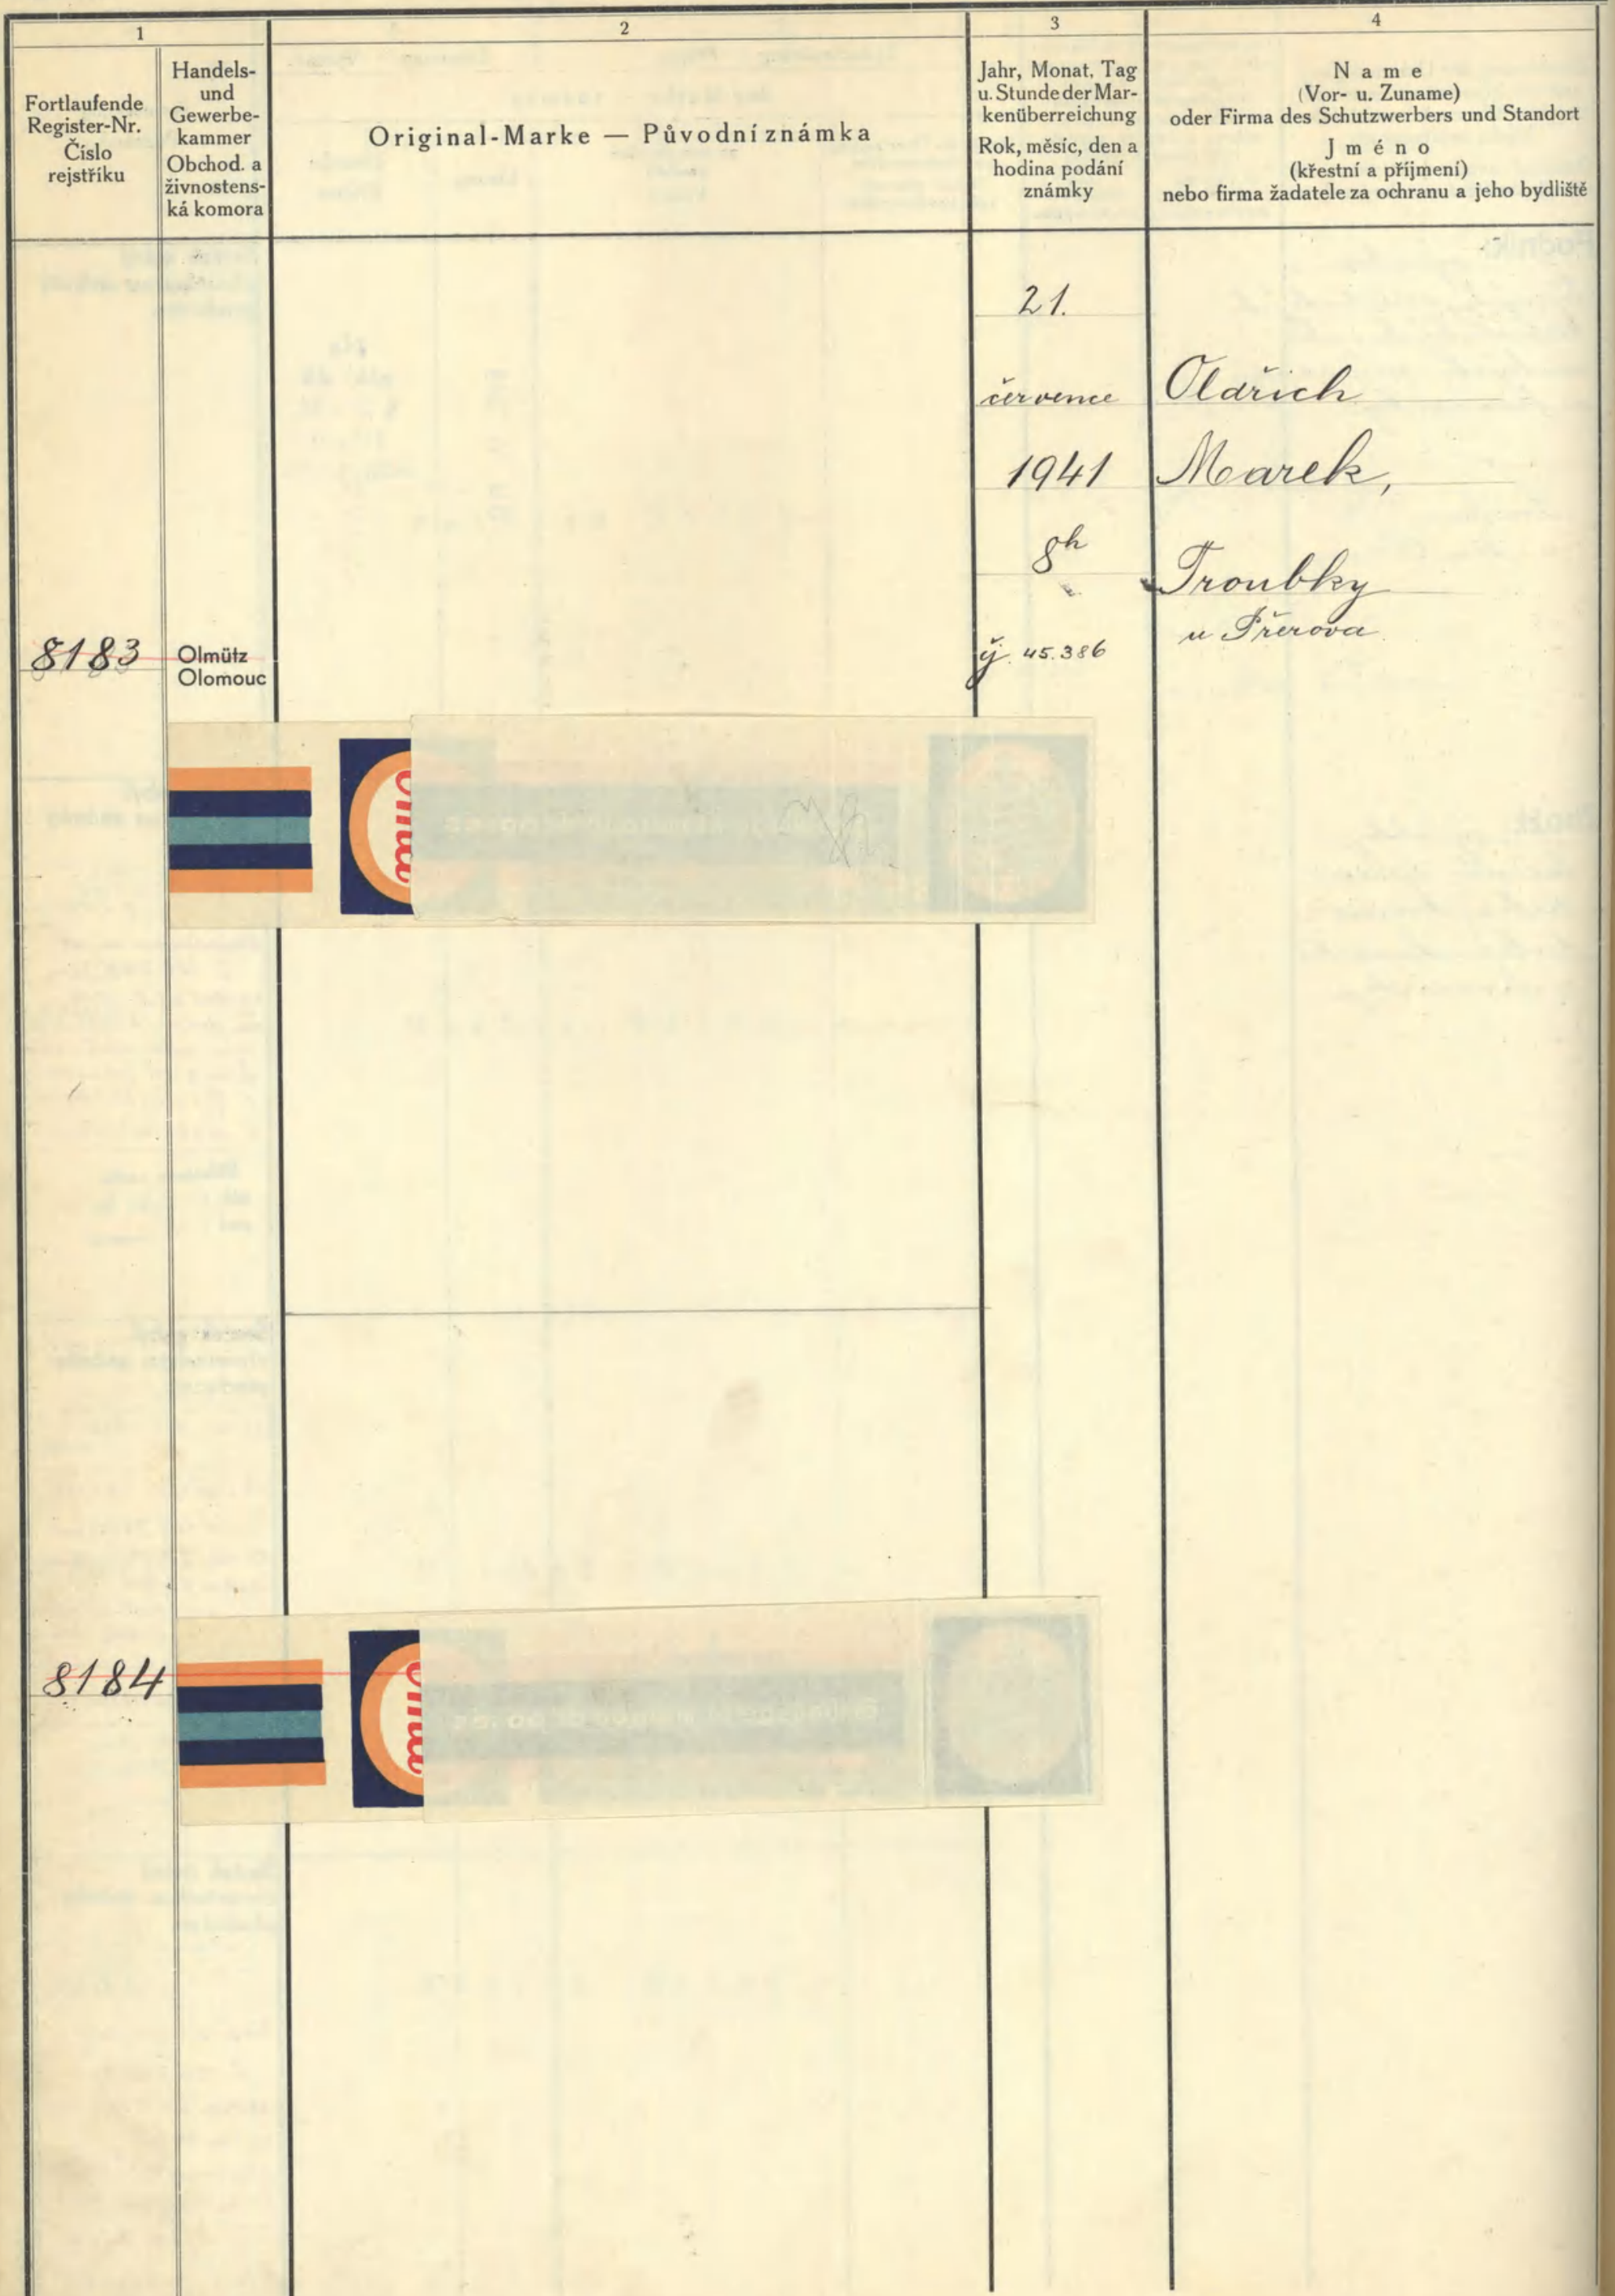 1
2
3
4
Fortlaufende
Register-Nr.
Číslo
rejstříku
Handels-
und
Gewerbe-
kammer
Obchod. a
živnostens-
ká komora
Original-Marke — Původní známka
Jahr, Monat, Tag
u. Stunde der Mar-
kenüberreichung
Rok, měsíc, den a
hodina podání
známky
Name
(Vor- u. Zuname)
oder Firma des Schutzwerbers und Standort
Jméno
(křestní a příjmení)
nebo firma žadatele za ochranu a jeho bydliště
21.
července
1941
8h
čj. 45.386
Oldřich
Marek,
Troubky
u Přerova
8183
Olmütz
Olomouc
8184